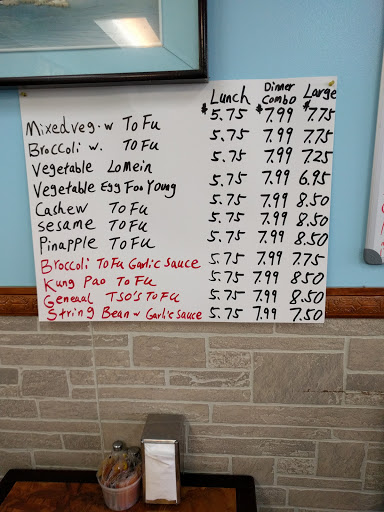 Lunch Dinner Combo Large
Mixed veg. w ToFu $5.75 $7.99 $7.75
Broccoli w. ToFu 5.75 7.99 7.75
Vegetable Lomein 5.75 7.99 7.25
Vegetable Egg Foo Young 5.75 7.99 6.95
Cashew ToFu 5.75 7.99 8.50
sesame ToFu 5.75 7.99 8.50
Pinapple ToFu 5.75 7.99 8.50
Broccoli ToFu Garlic sauce 5.75 7.99 7.75
Kung Pao ToFu 5.75 7.99 8.50
Geneaal TSO'S ToFu 5.75 7.99 8.50
String Bean w Garlic sauce 5.75 7.99 7.50